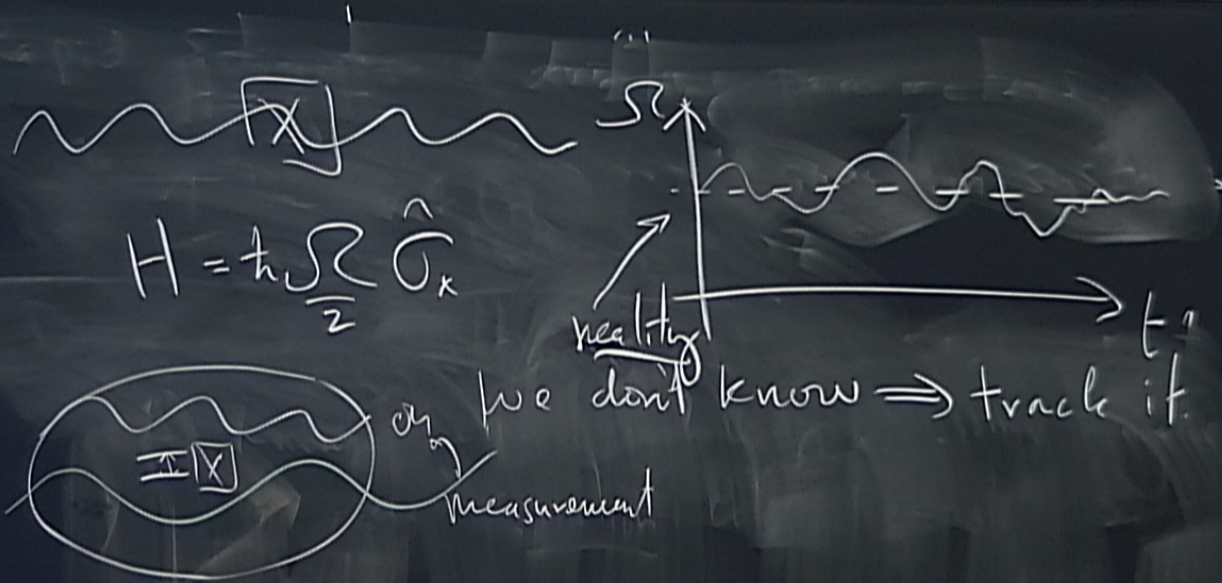 X
Ω
H = ħ Ω/2 σ̂ₓ
reality
t
We don't know ⇒ track it.
X
measurement